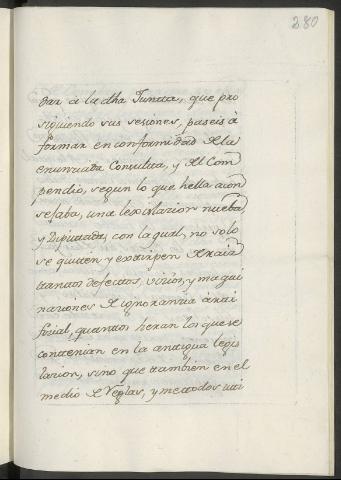 280
dar à la dha Juncta, que pro
siguiendo sus sesiones, paseis à
formar en conformidad de la
enunciada Consulta, y del Com
pendio, segun lo que hella acon
sejaba, una lexislacion nueba,
y Diputada, con la qual, no solo
se quiten y extirpen de raiz
tantos defectos, vicios, y maqui
naciones de ignorancia artifi
ficial, quantos heran los que se
contenian en la antigua legis
lacion, sino que tambien en el
medio de Reglas, y metodos uti